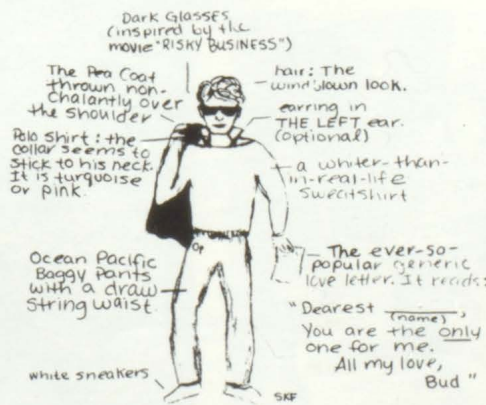 Dark Glasses
(inspired by the
movie "RISKY BUSINESS")
The Pea Coat
thrown non-
chalantly over
the shoulder
Polo Shirt: the
collar seems to
stick to his neck.
It is turquoise
or pink.
Ocean Pacific
Baggy Pants
with a draw
string waist.
white sneakers
hair: The
windblown look.
earring in
THE LEFT ear.
(optional)
a whiter-than-
in-real-life
sweatshirt
The ever-so-
popular generic
love letter. It reads:
"Dearest ________,
(name)
You are the only
one for me.
All my love,
Bud"
Op
SKF